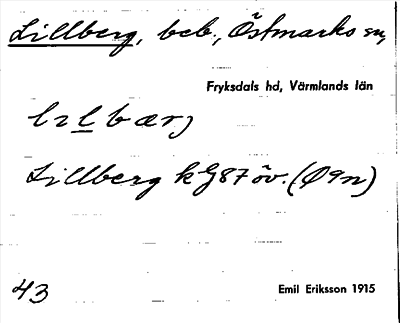 Lillberg, beb., Östmarks sn,
Fryksdals hd, Värmlands län
Lillberg k G87 öv. (Ö9n)
43
Emil Eriksson 1915